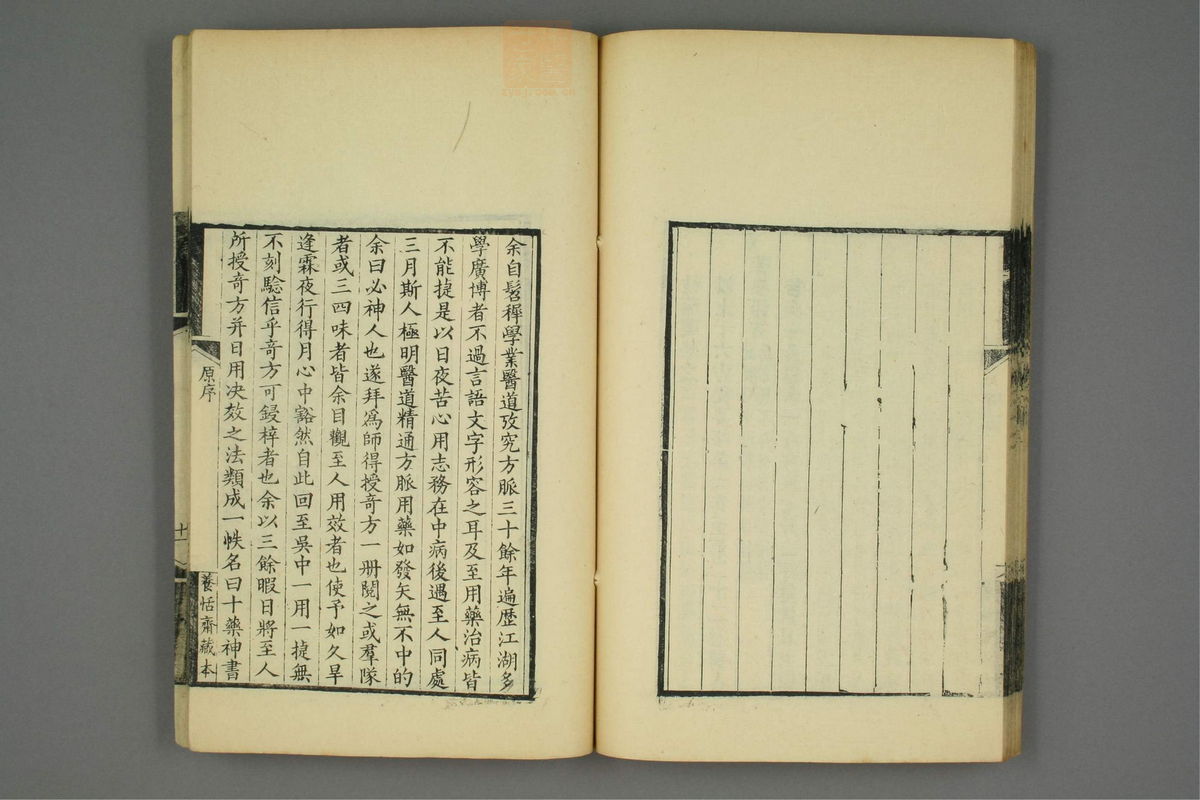 余自髫穉學業醫道攷究方脈三十餘年遍歷江湖多
學廣博者不過言語文字形容之耳及至用藥治病皆
不能捷是以日夜苦心用志務在中病後遇至人同處
三月斯人極明醫道精通方脈用藥如發矢無不中的
余曰必神人也遂拜爲師得授奇方一册閱之或羣隊
者或三四味者皆余目觀至人用效者也使予如久旱
逢霖夜行得月心中豁然自此回至吳中一用一捷無
不刻驗信乎奇方可鋟梓者也余以三餘暇日將至人
所授奇方并日用决效之法類成一帙名曰十藥神書
原序
十一
養恬齋藏本